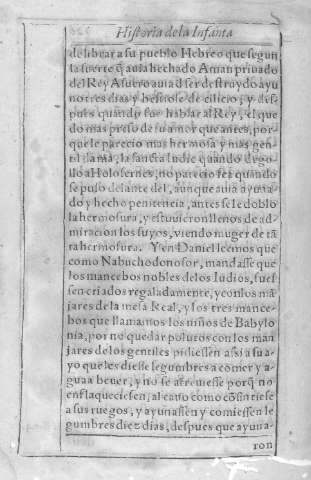 Historia de la Infanta
de librar a su pueblo Hebreo que segun
la suerte q̃ auia hechado Aman priuado
del Rey Asuero auia d ser destruydo ayu
no tres dias y bestiose de cilicio; y des-
pues quando fue hablar al Rey, el que
do mas preso de su amor que antes, por-
que le parecio mas hermosa y mas gen-
til dama, la sancta Iudic quando degò-
llo a Holofernes, no parecio fea quando
se puso delante del, aunque auia ayuna-
do y hecho penitencia, antes se le doblo
la hermosura, y estuuieron llenos de ad-
miracion los suyos, viendo muger de tã
ta hermosura. Y en Daniel leemos que
como Nabuchodonosor, mandasse que
los mancebos nobles de los Iudios, fues
sen criados regaladamente, y con los mã
jares de la mesa Real, y los tres mance-
bos que llamamos los niños de Babylo
nia, por no quedar polutos con los man
jares de los gentiles pidiessen assi a su a-
yo que les diesse legumbres a comer y a-
gua a beuer, y no se atreuiesse porq̃ no
enflaqueciesen, al cabo como cõsintiese
a sus ruegos, y ayunassen y comiessen le
gumbres diez dias, despues que ayuna-
ron